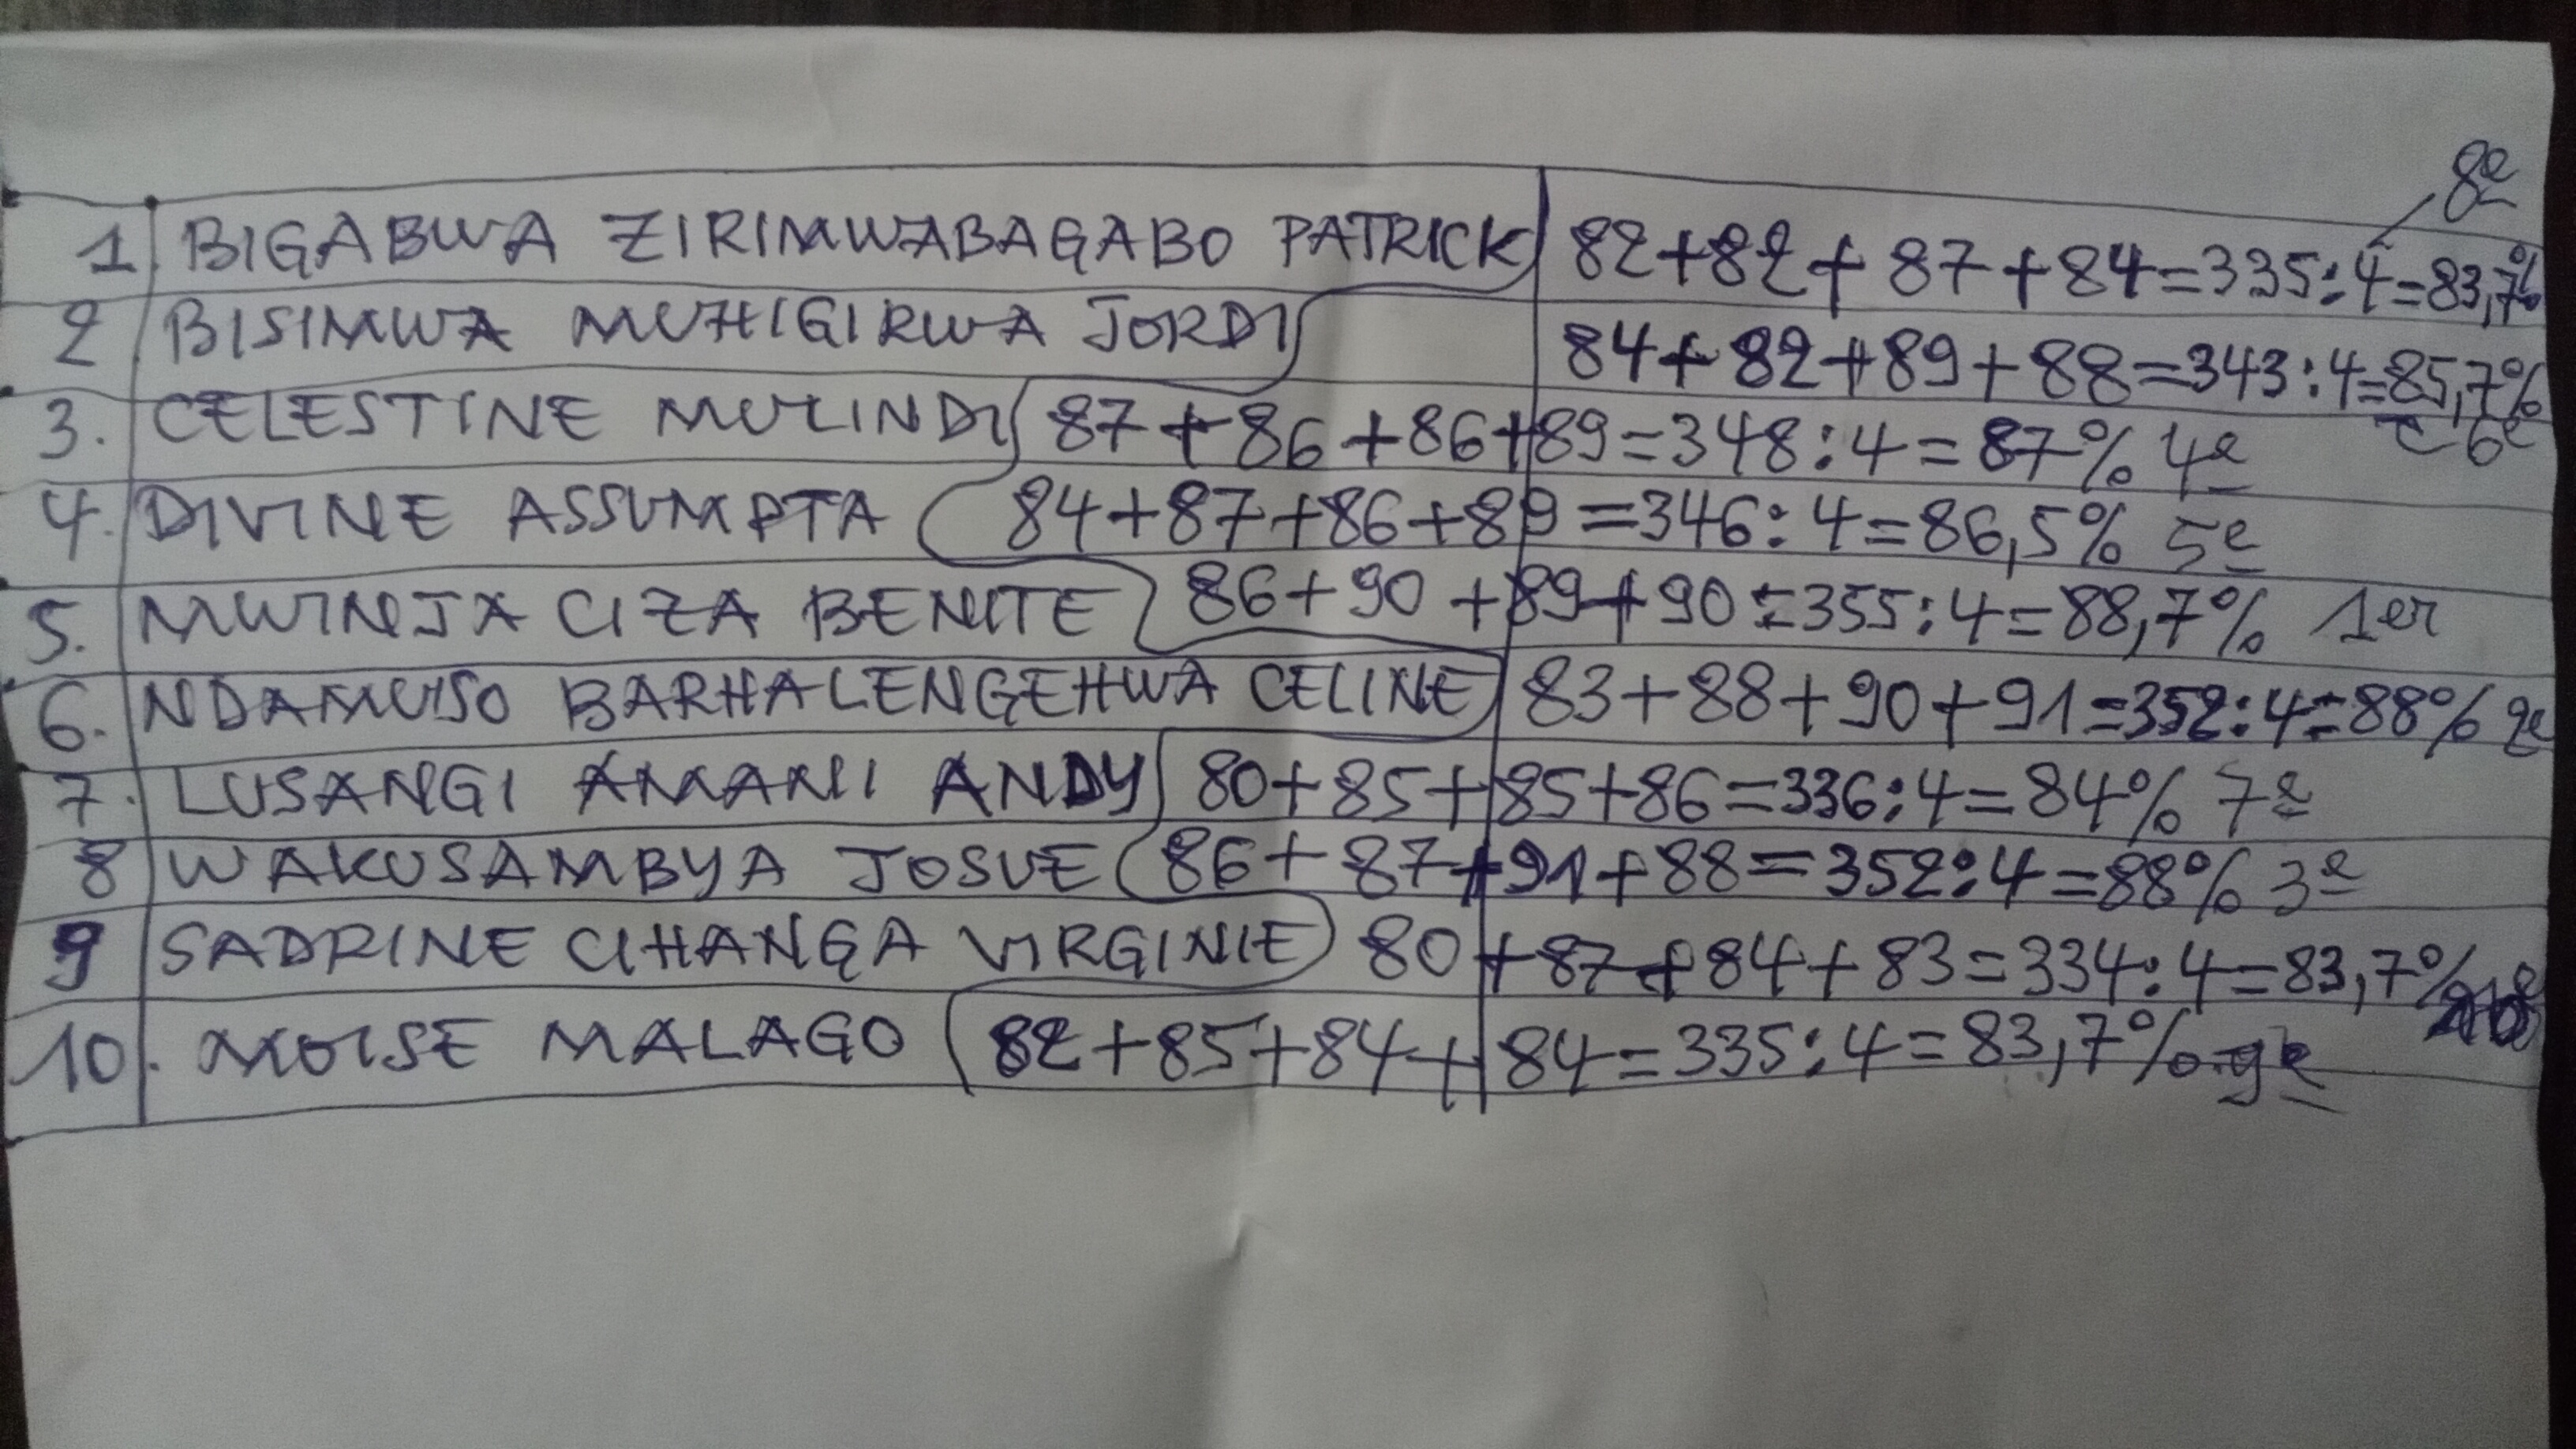 8e
1. BIGABWA ZIRIMWABAGABO PATRICK 82+82+87+84=335:4=83,7%
2 BISIMWA MUHIGIRWA JORDI 84+82+89+88=343:4=85,7%
6e
3. CELESTINE MULINDI 87+86+86+89=348:4=87% 4e
4. DIVINE ASSUMPTA 84+87+86+89=346:4=86,5% 5e
5. MWINJA CIZA BENITE 86+90+89+90=355:4=88,7% 1er
6. NDAMUSO BARHALENGEHWA CELINE 83+88+90+91=352:4=88% 2e
7. LUSANGI AMANI ANDY 80+85+85+86=336:4=84% 7e
8 WAKUSAMBYA JOSUE 86+87+91+88=352:4=88% 3e
9 SADRINE CIHANGA VIRGINIE 80+87+84+83=334:4=83,7%
10. MOISE MALAGO 82+85+84+84=335:4=83,7% 9e